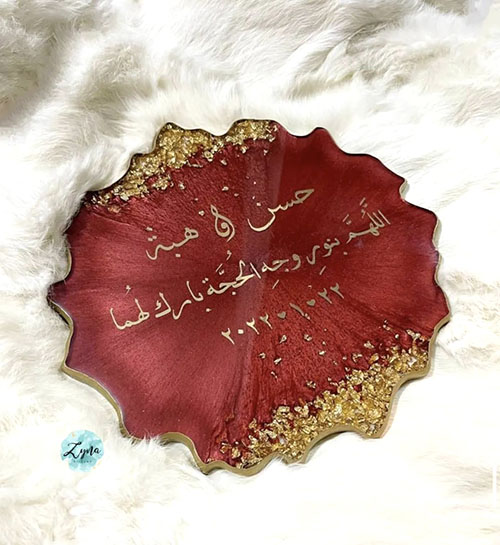 حسن و هبة
اللَّهُمَّ بنورِ وجهِ الحُجَّةِ بارك لهُما
٢٠٢٢ ♥ ١ ♥ ٢٢
Zyna